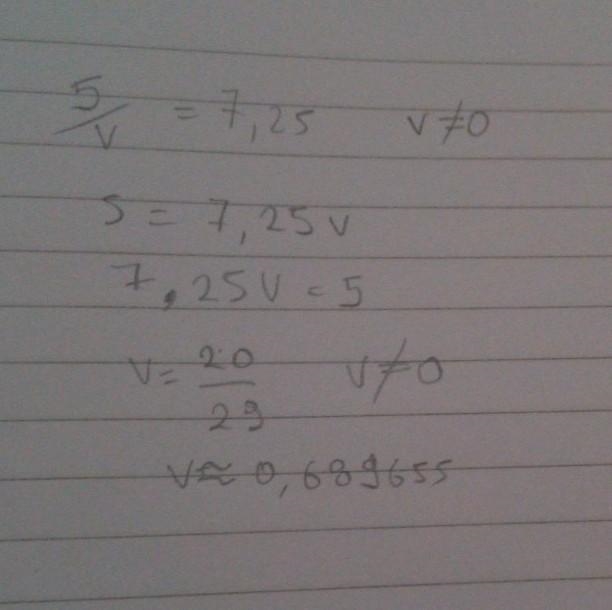 5/v = 7,25 v≠0
5 = 7,25v
7,25v = 5
v = 20/29 v≠0
v≈ 0,689655